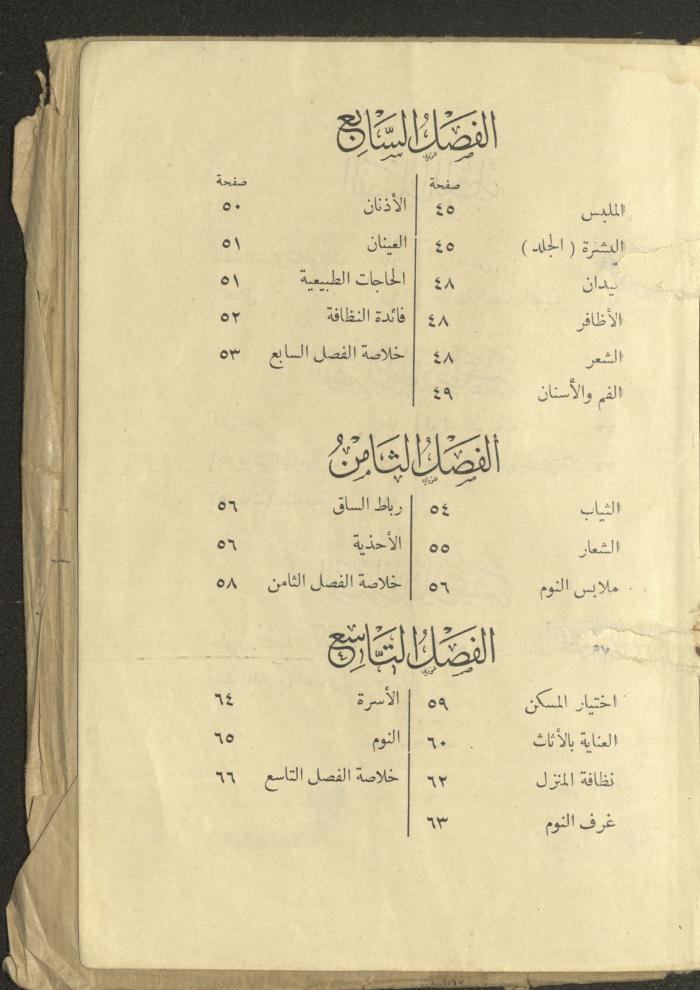 الفصل السابع
صفحة
صفحة
الملبس ٤٥
الأذنان ٥٠
البشرة ( الجلد ) ٤٥
العينان ٥١
يدان ٤٨
الحاجات الطبيعية ٥١
الأظافر ٤٨
فائدة النظافة ٥٢
الشعر ٤٨
خلاصة الفصل السابع ٥٣
الفم والأسنان ٤٩
الفصل الثامن
الثياب ٥٤
رباط الساق ٥٦
الشعار ٥٥
الأحذية ٥٦
ملابس النوم ٥٦
خلاصة الفصل الثامن ٥٨
الفصل التاسع
٥٧
اختيار المسكن ٥٩
الأسرة ٦٤
العناية بالأثاث ٦٠
النوم ٦٥
نظافة المنزل ٦٢
خلاصة الفصل التاسع ٦٦
غرف النوم ٦٣